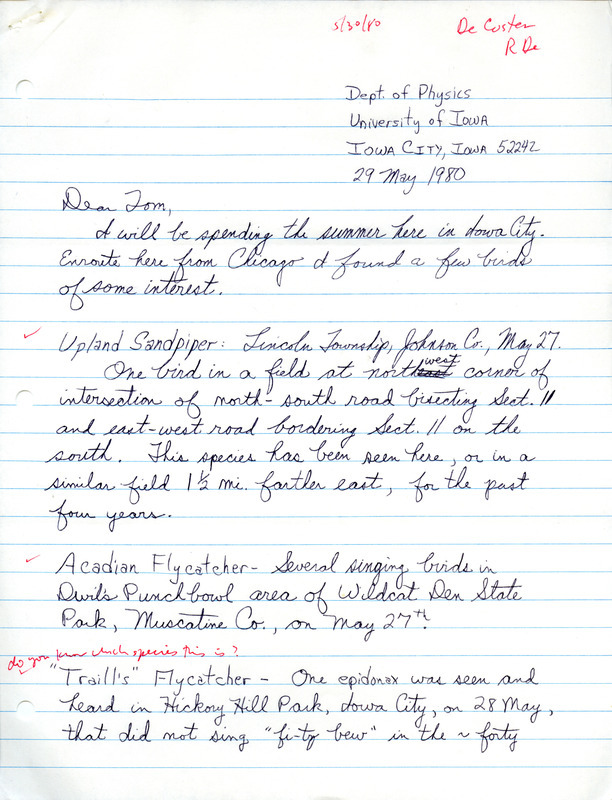 5/30/80
De Coster
R De
Dept. of Physics
University of Iowa
Iowa City, Iowa 52242
29 May 1980
Dear Tom,
I will be spending the summer here in Iowa City.
Enroute here from Chicago I found a few birds
of some interest.
Upland Sandpiper: Lincoln Township, Johnson Co., May 27.
One bird in a field at northwest corner of
intersection of north-south road bisecting Sect. 11
and east-west road bordering Sect. 11 on the
south. This species has been seen here, or in a
similar field 1½ mi. farther east, for the past
four years.
Acadian Flycatcher - Several singing birds in
Devil's Punchbowl area of Wildcat Den State
Park, Muscatine Co., on May 27th.
do you know which species this is?
"Traill's" Flycatcher - One epidonax was seen and
heard in Hickory Hill Park, Iowa City, on 28 May,
that did not sing "fi-tz bew" in the ~ forty